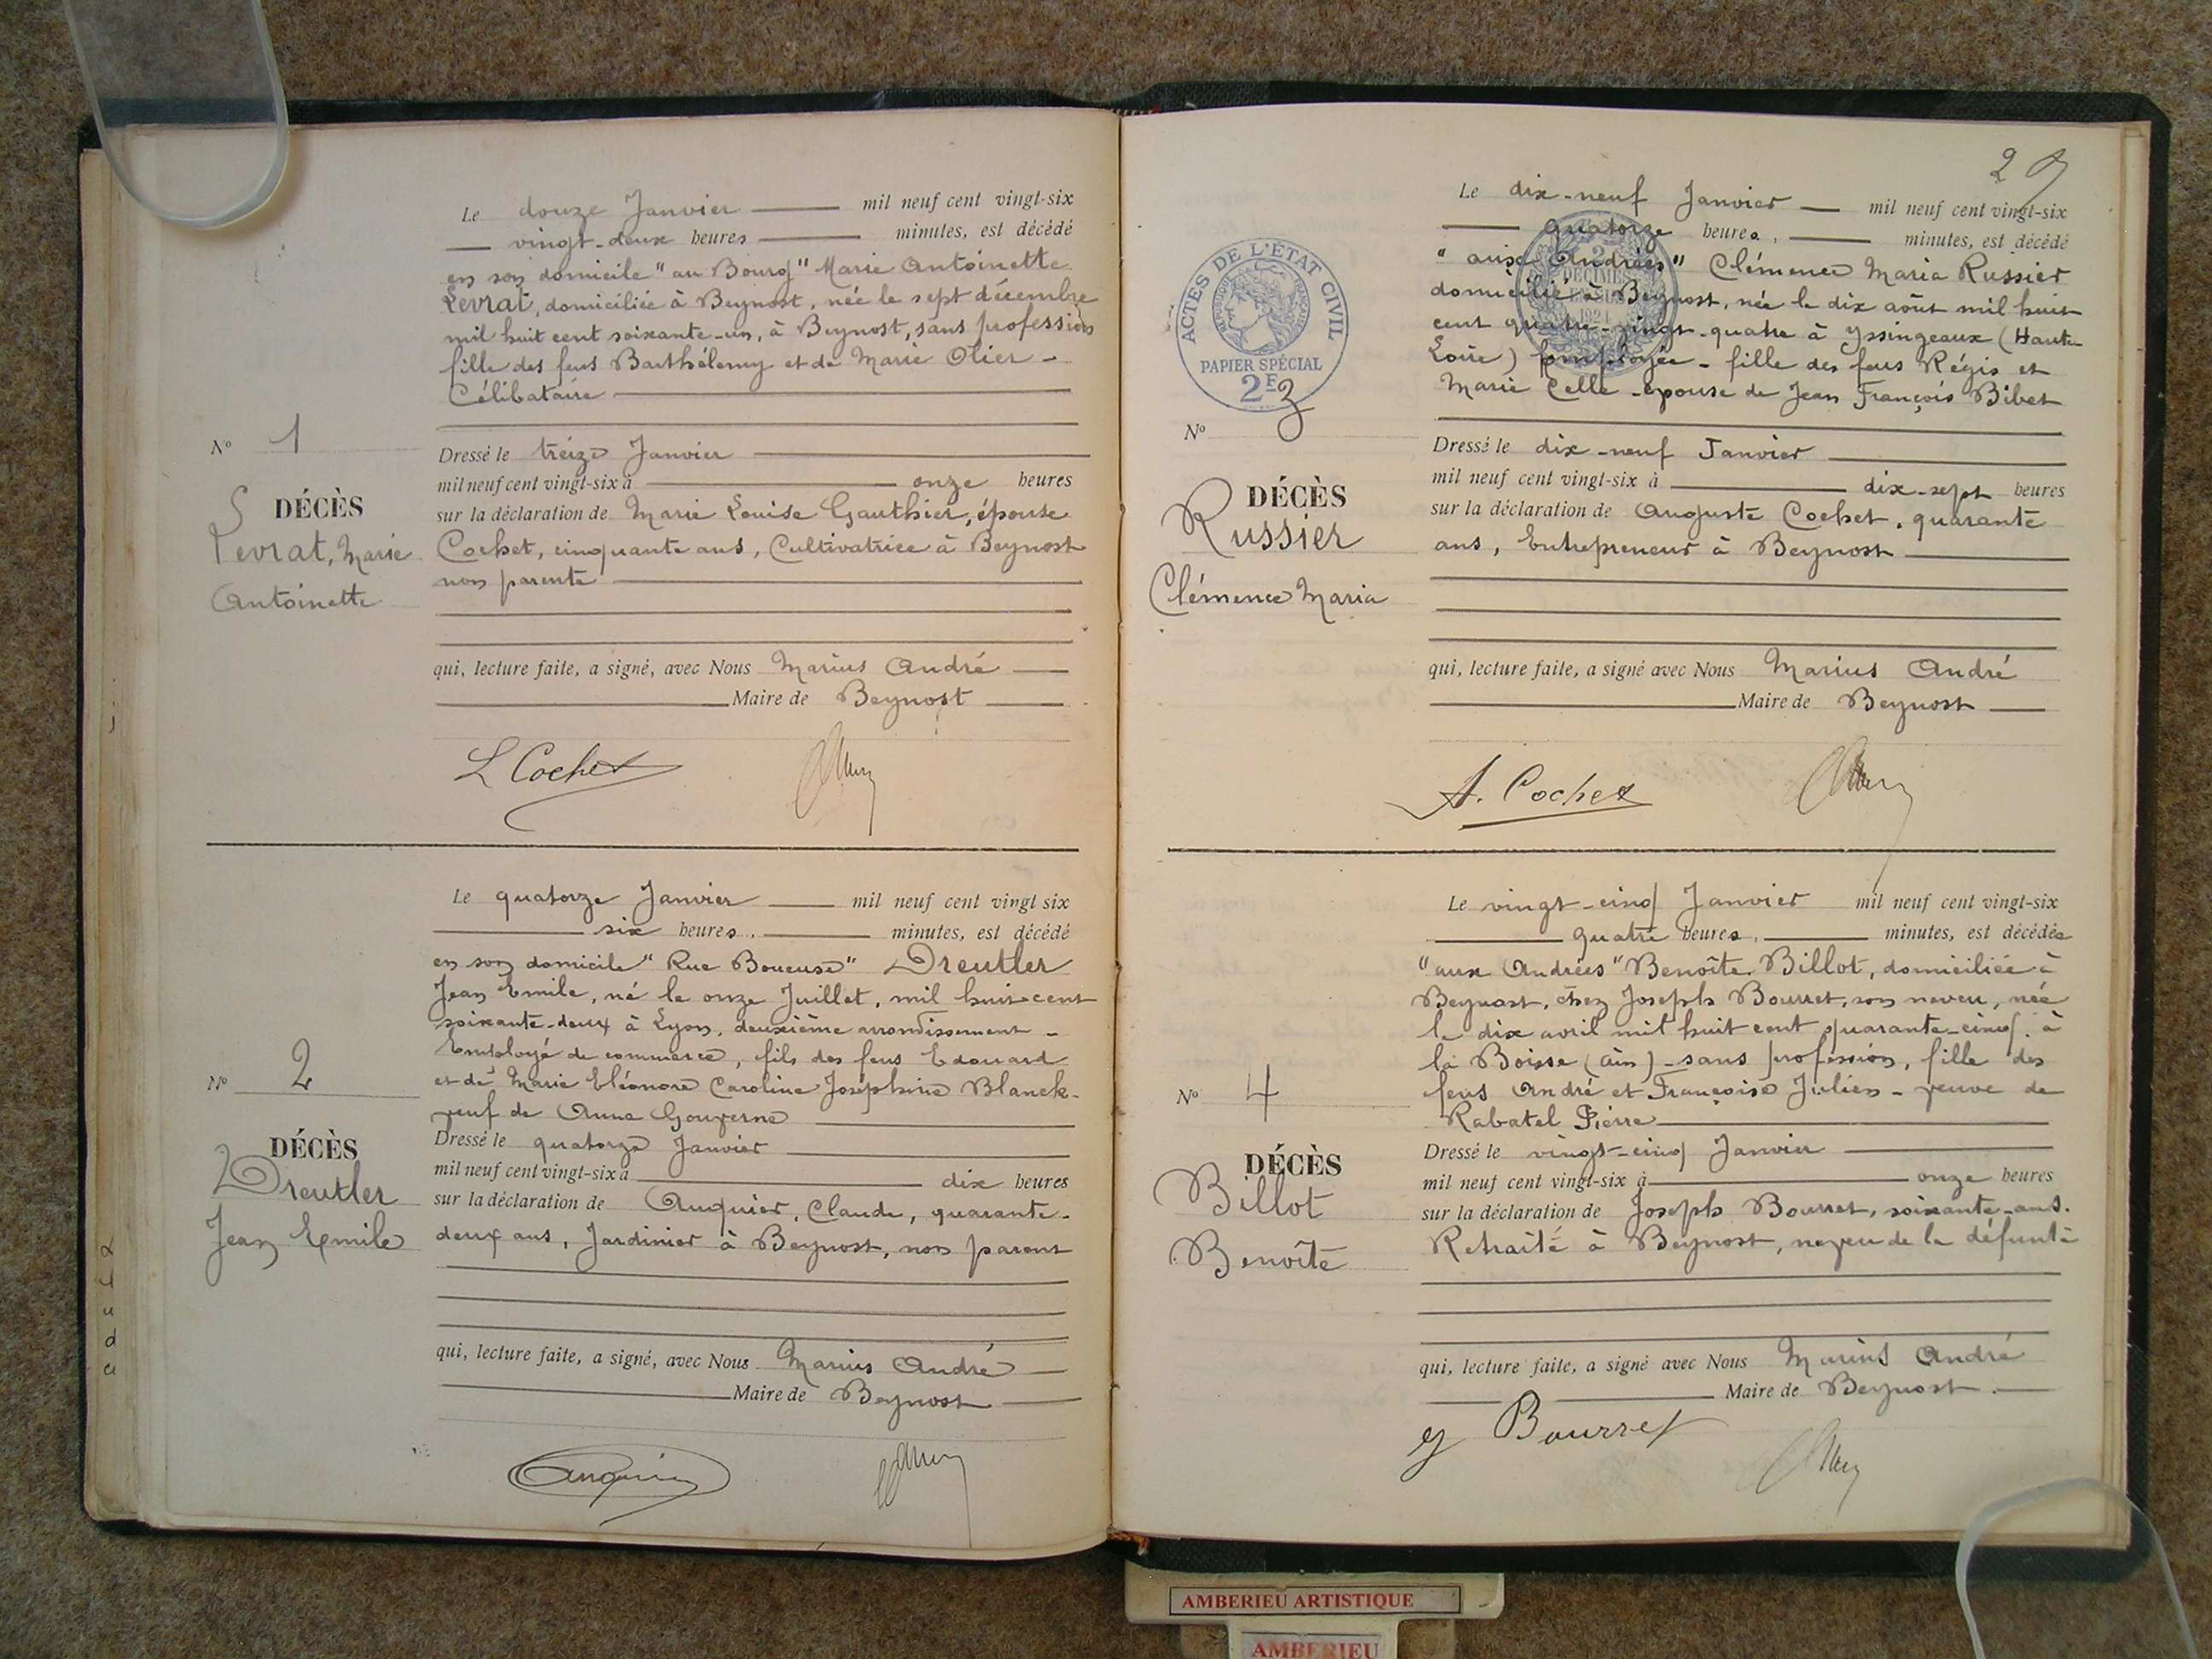 Le douze Janvier mil neuf cent vingt-six
vingt-deux heures minutes, est décédé
en son domicile "au Bourg" Marie Antoinette
Levrat, domiciliée à Beynost, née le sept décembre
mil huit cent soixante-un, à Beynost, sans profession
fille des feus Barthélemy et de Marie Olier -
Célibataire
No 1
DÉCÈS
Levrat, Marie
Antoinette
Dressé le treize Janvier
mil neuf cent vingt-six à onze heures
sur la déclaration de Marie Louise Gauthier, épouse
Cochet, cinquante ans, Cultivatrice à Beynost
non parente
qui, lecture faite, a signé, avec Nous Marius André
Maire de Beynost
L Cochet
Le quatorze Janvier mil neuf cent vingt six
six heures, minutes, est décédé
en son domicile "Rue Boueuse" Dreutler
Jean Emile, né le onze Juillet, mil huit cent
soixante-deux à Lyon, deuxième arrondissement -
Employé de commerce, fils des feus Edouard
et de Marie Eléonore Caroline Joséphine Blanck -
veuf de Anna Gouverne
No 2
DÉCÈS
Dreutler
Jean Emile
Dressé le quatorze Janvier
mil neuf cent vingt-six à dix heures
sur la déclaration de Auquier, Claude, quarante-
deux ans, Jardinier à Beynost, non parent
qui, lecture faite, a signé, avec Nous Marius André
Maire de Beynost
Auquier
2
Le dix-neuf Janvier mil neuf cent vingt-six
quatorze heures, minutes, est décédé
"aux Andrées" Clémence Maria Russier
domicilié à Beynost, née le dix août mil huit
cent quatre-vingt-quatre à Yssingeaux (Haute
Loire) employée - fille des feus Régis et
Marie Celle - épouse de Jean François Bibet
ACTES DE L'ÉTAT CIVIL
RÉPUBLIQUE FRANÇAISE
PAPIER SPÉCIAL
2E
DÉCIMES
EN SUS
1924
No 3
DÉCÈS
Russier
Clémence Maria
Dressé le dix-neuf Janvier
mil neuf cent vingt-six à dix-sept heures
sur la déclaration de Auguste Cochet, quarante
ans, Entrepreneur à Beynost
qui, lecture faite, a signé avec Nous Marius André
Maire de Beynost
A. Cochet
Le vingt-cinq Janvier mil neuf cent vingt-six
quatre heures, minutes, est décédée
"aux Andrées" Benoîte Billot, domiciliée à
Beynost, chez Joseph Bourret, son neveu, née
le dix avril mil huit cent quarante-cinq, à
la Boisse (Ain) - sans profession, fille des
feus André et Françoise Julien - veuve de
Rabatel Pierre
No 4
DÉCÈS
Billot
Benoîte
Dressé le vingt-cinq Janvier
mil neuf cent vingt-six à onze heures
sur la déclaration de Joseph Bourret, soixante-ans.
Retraité à Beynost, neveu de la défunte
qui, lecture faite, a signé avec Nous Marius André
Maire de Beynost.
J Bourret
AMBERIEU ARTISTIQUE
AMBERIEU